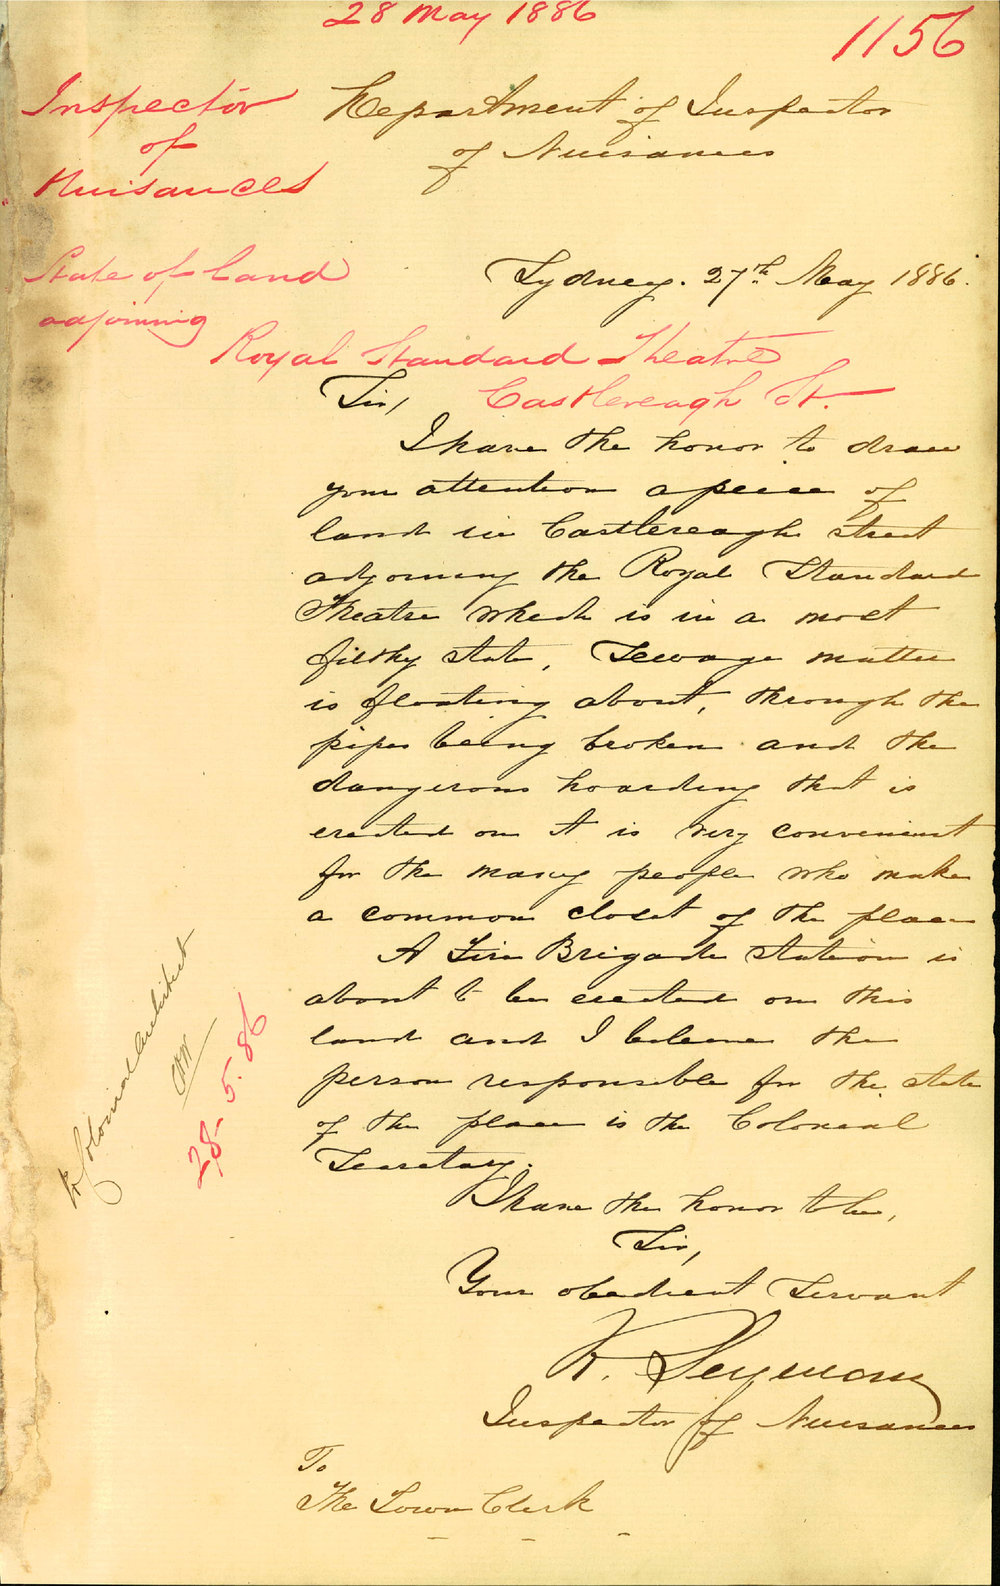 28 May 1886
1156
Inspector
of
Nuisances
Department of Inspector
of Nuisances
State of land
adjoining
Royal Standard Theatre
Castlereagh St.
Sydney. 27th. May 1886.
Sir,
I have the honor to draw
your attention a peice of
land in Castlereagh street
adjoining the Royal Standard
Theatre which is in a most
filthy state, Sewage matter
is floating about, through the
pipes being broken and the
dangerous hoarding that is
erected on it is very convenient
for the many people who make
a common closet of the place
A Fire Brigade station is
about to be erected on this
land and I believe the
person responsible for the state
of the place is the Colonial
Secretary.
I have the honor to be,
Sir,
Your obedient Servant
R. Seymour
Inspector of Nuisances
To
The Town Clerk
Colonial Architect
28.5.86